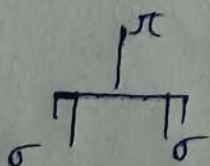 π
σ σ